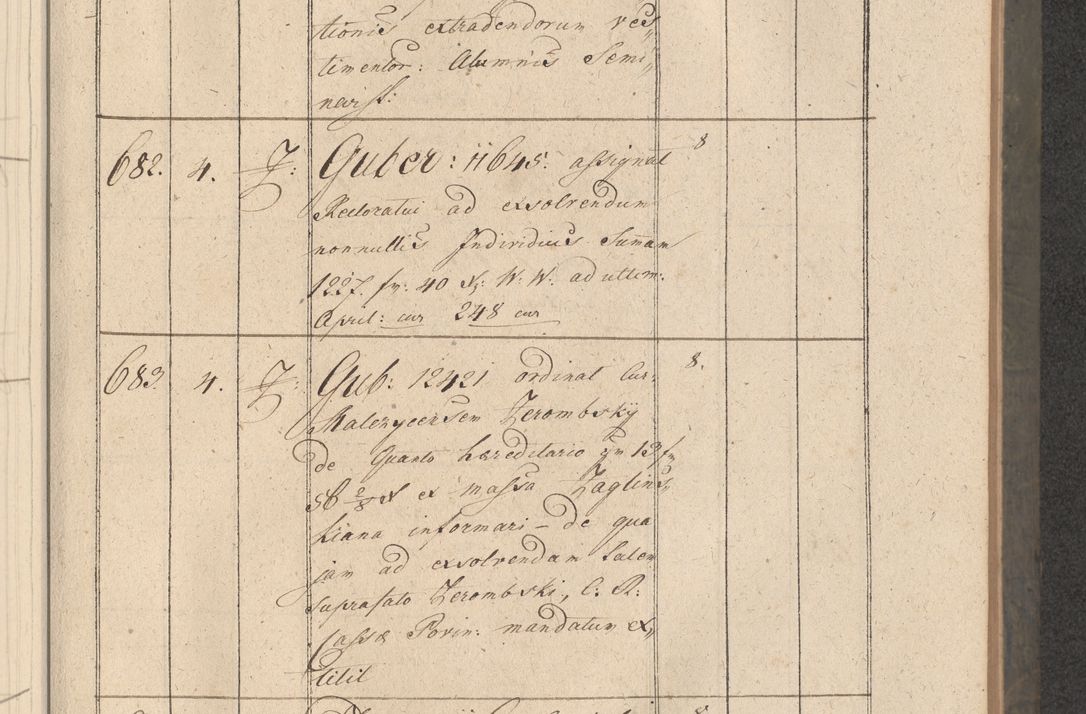 tionis extradendorum ves„
timentor: Alumnis Semi„
narist:
682. 4. J: Guber: 11645. assignat 8
Rectoratui ad exsolvendum
nonnullis Individuis Summam
1227. fr: 40 x: W: W: ad ultim:
April: cur 248 cur
683. 4. J: Gub: 12421 ordinat Cur: 8.
Malezycensem Zerombskÿ
de Quanto hereditario 13 fr
58 2/8 x ex massa Zaglins„
kiana informari – de qua
jam ad exsolvendam talem
suprafato Zerombski, C. R.
Cassæ Povin: mandatum ex„
titit